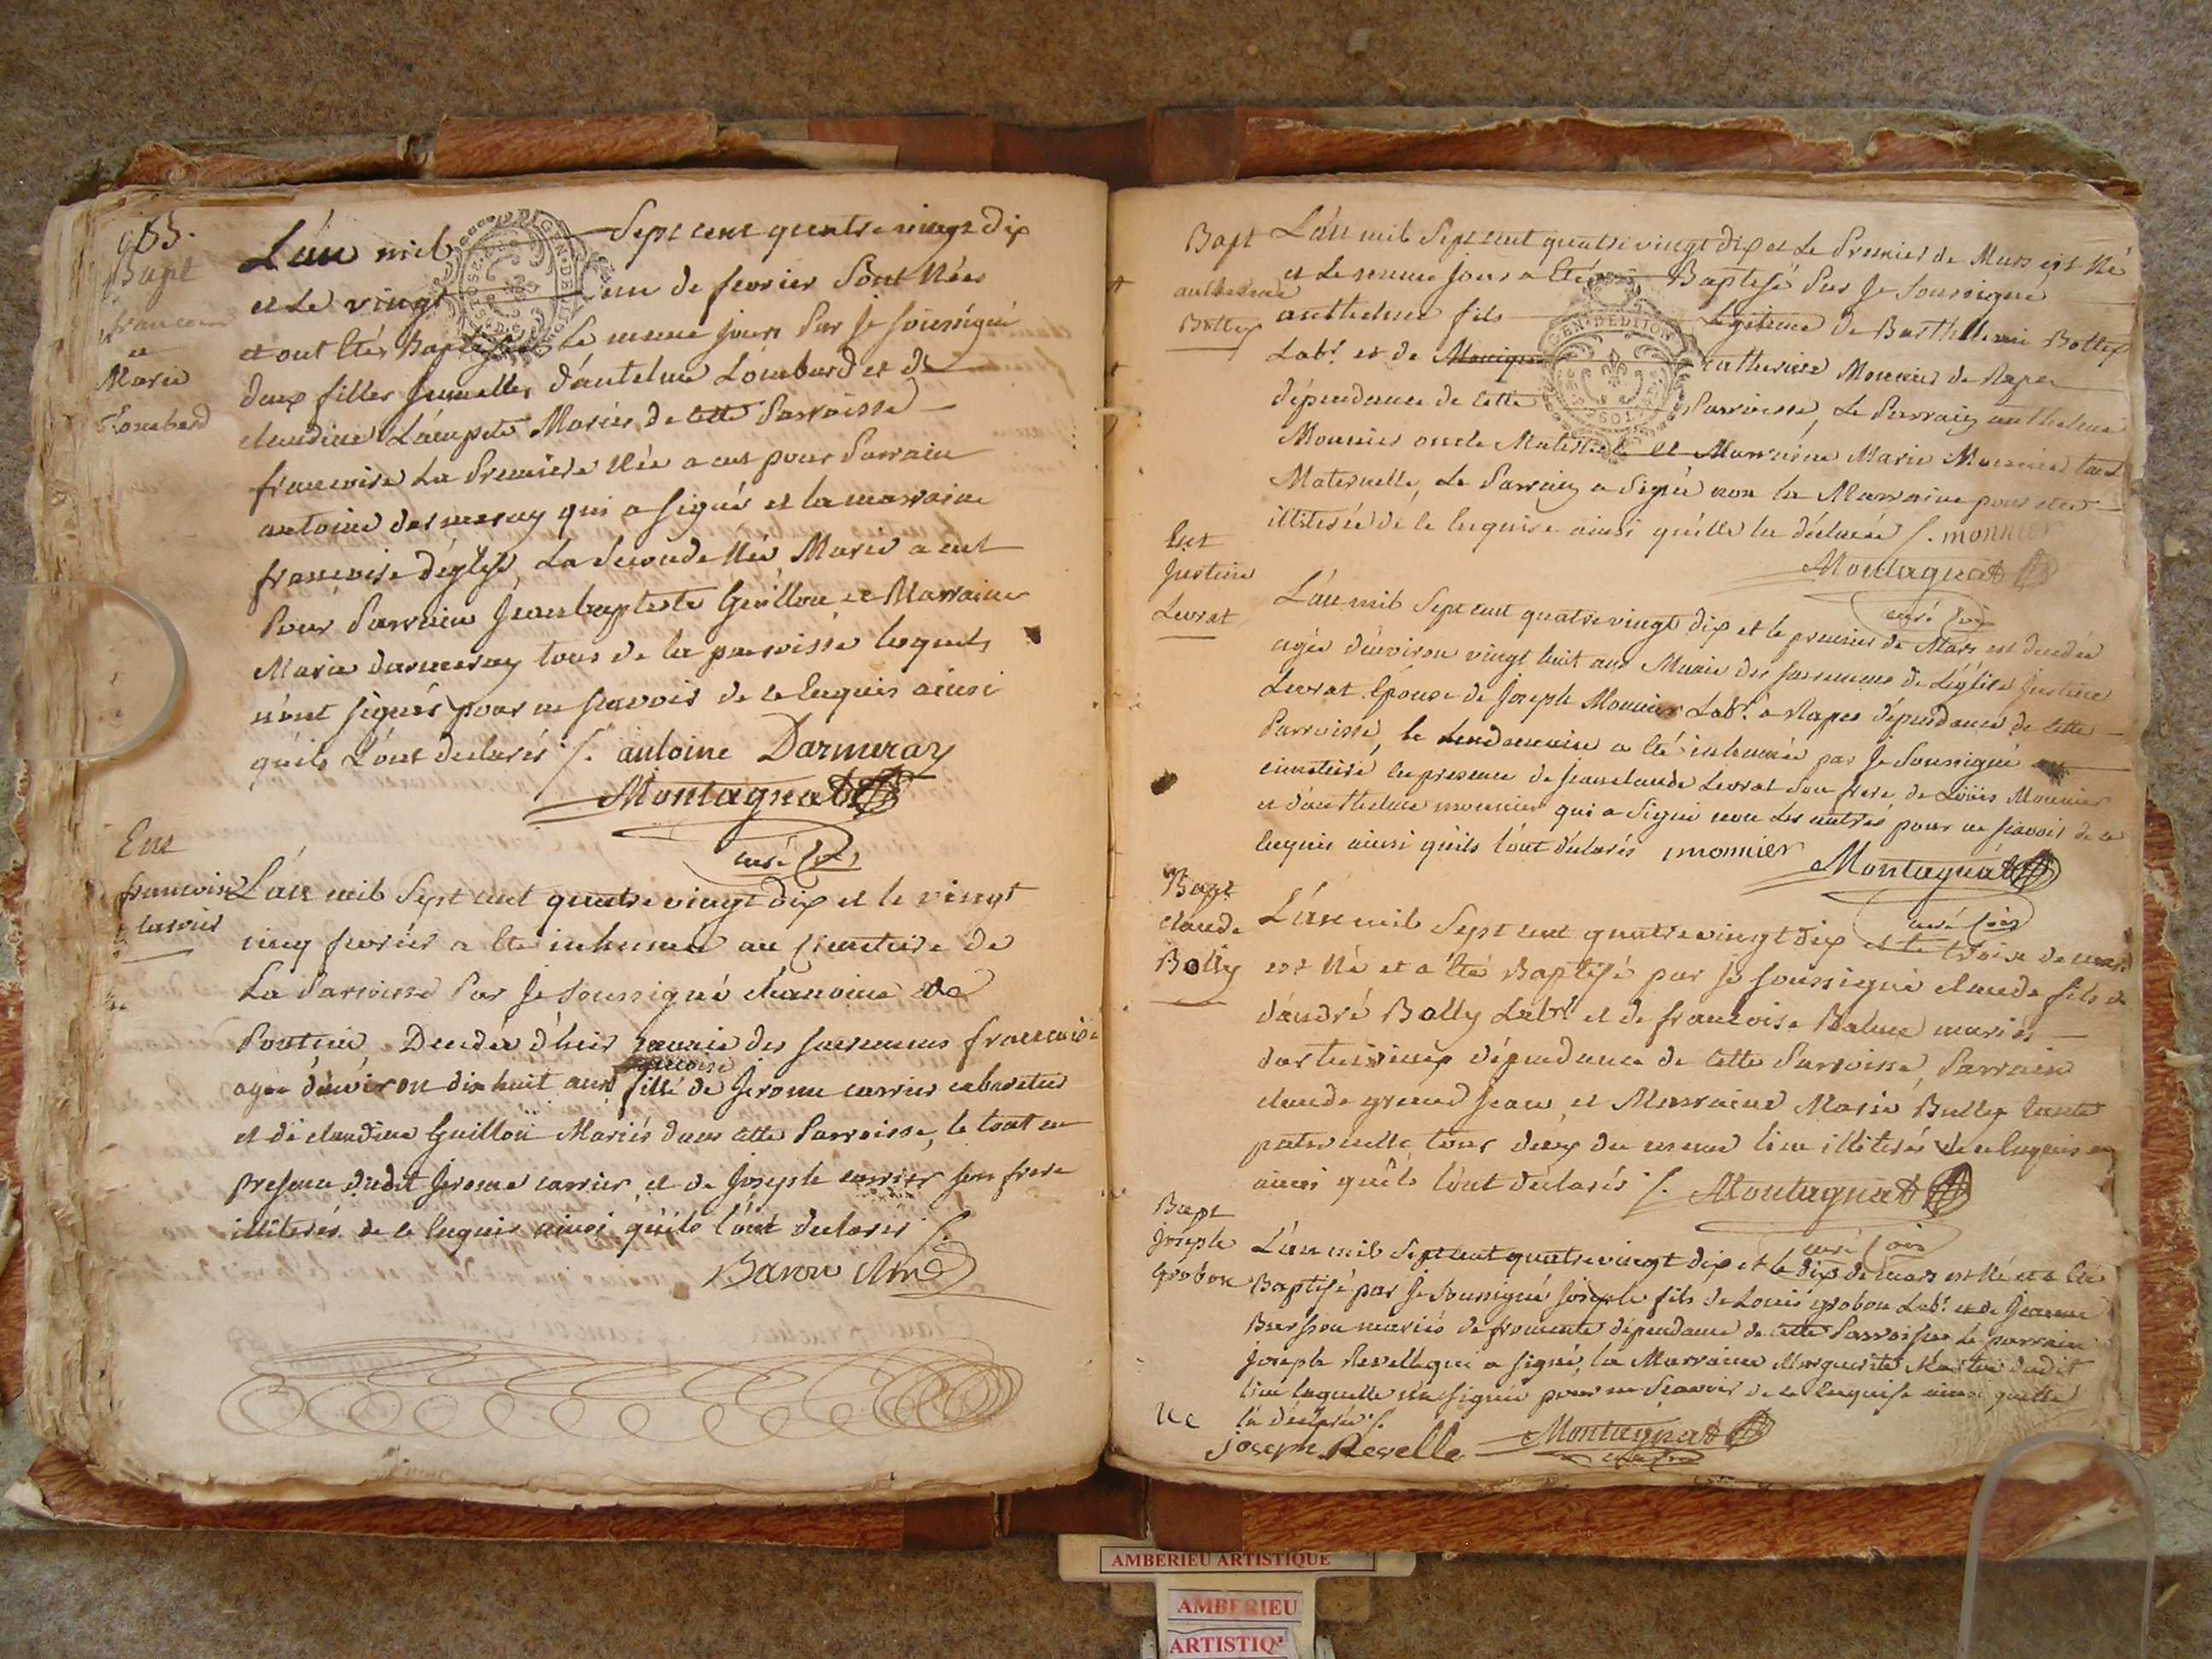 Bapt
francoise
et
Marie
Lombard
L'an mil Sept cent quatre vingt dix
et Le vingt un de fevrier Sont Nées
et ont étés Baptisées le meme jour Par Je soussigné
deux filles Jumelles d'antelme Lombard et de
claudine Mariés de cette Parroisse
francoise La Premiere Née a eut pour Parrain
antoine darmeray qui a signé et la marraine
francoise d'églisse, La Seconde Née, Marie a eut
Pour Parrain Jean baptiste Guillon et Marraine
Marie darmeray tous de la parroisse lesquels
n'ont signés pour ne scavoir de ce Enquis ainsi
qu'ils L'ont declarés /. antoine Darmeray
Montagnat
curé
Ent
francoise
carrier
L'an mil Sept cent quatre vingt dix et le vingt
cinq fevrier a été inhumée au Cimetiere de
La Parroisse Par Je Soussigné chanoine de
Decedée d'hier munie des sacremens francoise
agée d'environ dix huit ans fille de Jerome carrier cabaretier
et de claudine Guillon Mariés dans cette Parroisse, le tout en
presence dudit Jerome carrier, et de Joseph carrier son frere
illiterés de ce Enquis ainsi qu'ils l'ont declarés /.
Baron
Bapt
anthelme
Bottex
L'an mil Sept cent quatre vingt dix et Le Premier de Mars est Né
et Le meme Jour a été Baptisé Par Je Soussigné
anthelme fils Legitime de Barthellemi Bottex
Labr. et de catherine Monnier de
dépendance de cette Parroisse, Le Parrain anthelme
Monnier oncle Maternel et Marraine Marie Monnier tante
Maternelle, Le Parrain a Signé non la Marraine pour etre
illiterée de ce Enquise ainsi qu'elle l'a déclarée /. monnier
Montagnat
curé
Ent
Justine
Levrat
L'an mil Sept cent quatre vingt dix et le premier de Mars est decedée
agée d'environ vingt huit ans Munie des sacremens de L'église Justine
Levrat Epouse de Joseph Monnier Labr. a dépendance de cette
Parroisse, le Lendemain a été inhumée par Je Soussigné au
cimetiere en presence de Jean claude Levrat son frere, de Loüis Monnier
et d'anthelme monnier qui a Signé non Les autres pour ne scavoir de ce
Enquis ainsi qu'ils l'ont déclarés monnier
Montagnat
curé
Bapt
claude
Bolly
L'an mil Sept cent quatre vingt dix et le treize de mars
est Né et a été Baptisé par Je soussigné claude fils de
d'andré Bolly Labr. et de francoise Balme mariés
dépendance de cette Parroisse, Parrain
claude grand Jean, et Marraine Marie tante
paternelle tous deux du meme lieu illiterés de ce Enquis
ainsi qu'ils l'ont declarés /. Montagnat
curé
Bapt
Joseph
Grobon
L'an mil Sept cent quatre vingt dix et le dix de mars est Né et a été
Baptisé par Je Soussigné Joseph fils de Louis grobon Labr. et de Jeanne
mariés de fromente dépendance de cette Parroisse Le parrain
Joseph Revelle qui a signé, la Marraine Marguerite dudit
lieu laquelle n'a signée pour ne Scavoir de ce Enquise ainsi quelle
la declarée /.
joseph Revelle
Montagnat
AMBERIEU ARTISTIQUE
AMBERIEU
ARTISTIQ